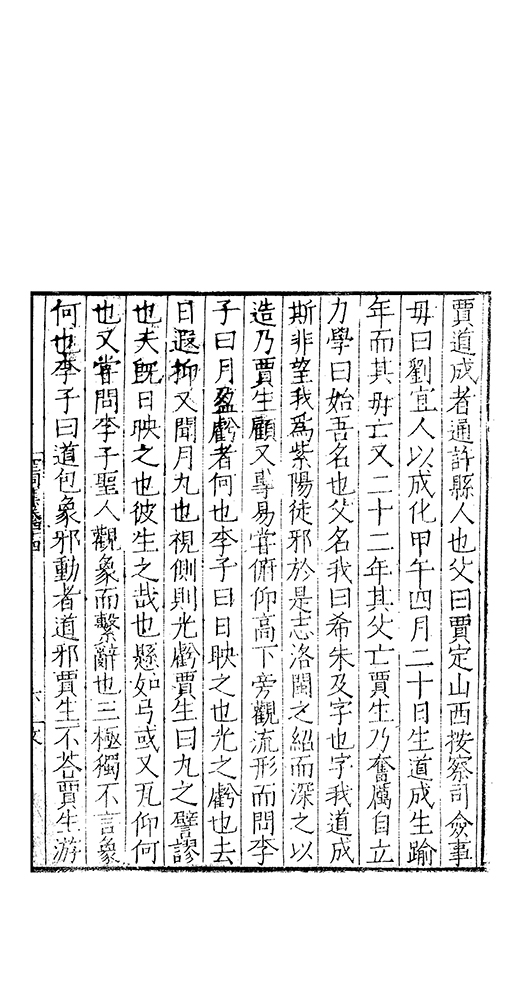 賈道成者通許縣人也父曰賈定山西按察司僉事
毋曰劉宜人以成化甲午四月二十日生道成生踰
年而其毋亡又二十二年其父亡賈生乃奮厲自立
力學曰始吾名也父名我曰希朱及字也字我道成
斯非望我為紫陽徒邪於是志洛閩之紹而深之以
造乃賈生顧又專易嘗俯仰高下旁觀流形而問李
子曰月盈虧者何也李子曰日映之也光之虧也去
日遐抑又聞月九也視側則光虧賈生曰九之譬謬
也夫既日映之也彼生之哉也懸如弓或又瓦仰何
也又嘗問李子聖人觀象而繫辭也三極獨不言象
何也李子曰道包象邪動者道邪賈生不荅賈生游
空同集卷四十四
六
文